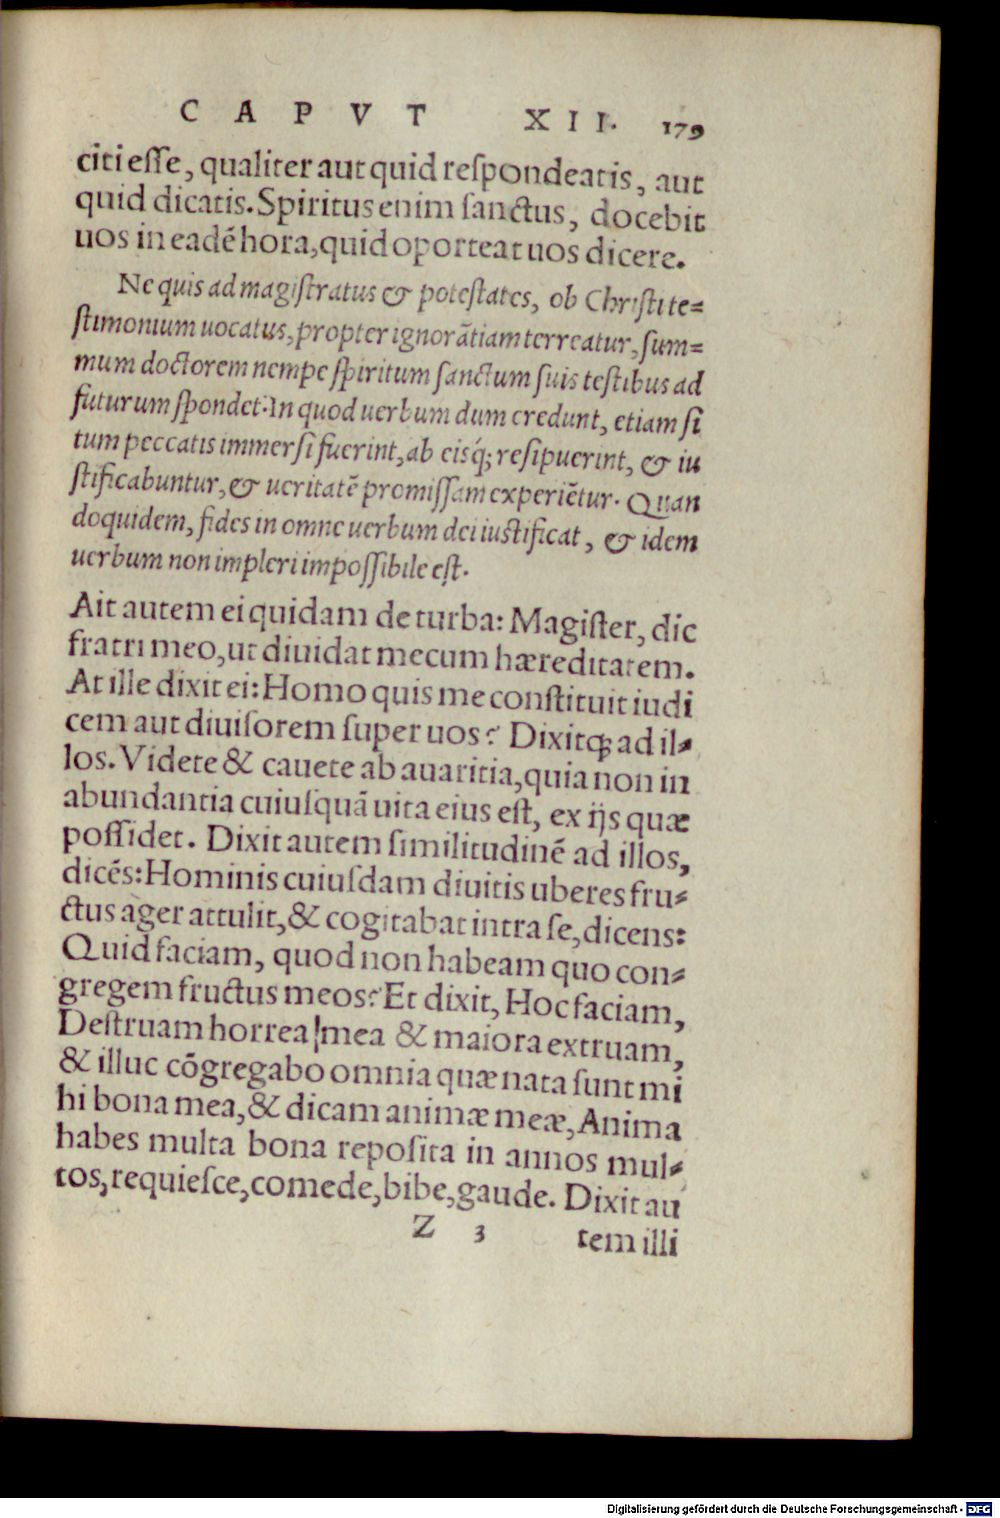 CAPVT XII. 179
citi eſſe, qualiter aut quid reſpondeatis, aut
quid dicatis. Spiritus enim ſanctus, docebit
uos in eadē hora, quid oporteat uos dicere.
Ne quis ad magiſtratus & poteſtates, ob Chriſti te=
ſtimonium uocatus, propter ignorātiam terreatur, ſum=
mum doctorem nempe ſpiritum ſanctum ſuis teſtibus ad
futurum ſpondet. In quod uerbum dum credunt, etiam ſi
tum peccatis immerſi fuerint, ab eisq́; reſipuerint, & iu
ſtificabuntur, & ueritatē promiſſam experiētur. Quan
doquidem, fides in omne uerbum dei iuſtificat, & idem
uerbum non impleri impoſſibile eſt.
Ait autem ei quidam de turba: Magiſter, dic
fratri meo, ut diuidat mecum hæreditatem.
At ille dixit ei: Homo quis me conſtituit iudi
cem aut diuiſorem ſuper uos? Dixitꝙ ad il-
los. Videte & cauete ab auaritia, quia non in
abundantia cuiuſquā uita eius eſt, ex ijs quæ
poſſidet. Dixit autem ſimilitudinē ad illos,
dicēs: Hominis cuiuſdam diuitis uberes fru-
ctus ager attulit, & cogitabat intra ſe, dicens:
Quid faciam, quod non habeam quo con-
gregem fructus meos? Et dixit, Hoc faciam,
Deſtruam horrea mea & maiora extruam,
& illuc cōgregabo omnia quæ nata ſunt mi
hi bona mea, & dicam animæ meæ, Anima
habes multa bona repoſita in annos mul-
tos, requieſce, comede, bibe, gaude. Dixit au
Z 3 tem illi
Digitalisierung gefördert durch die Deutsche Forschungsgemeinschaft - DFG